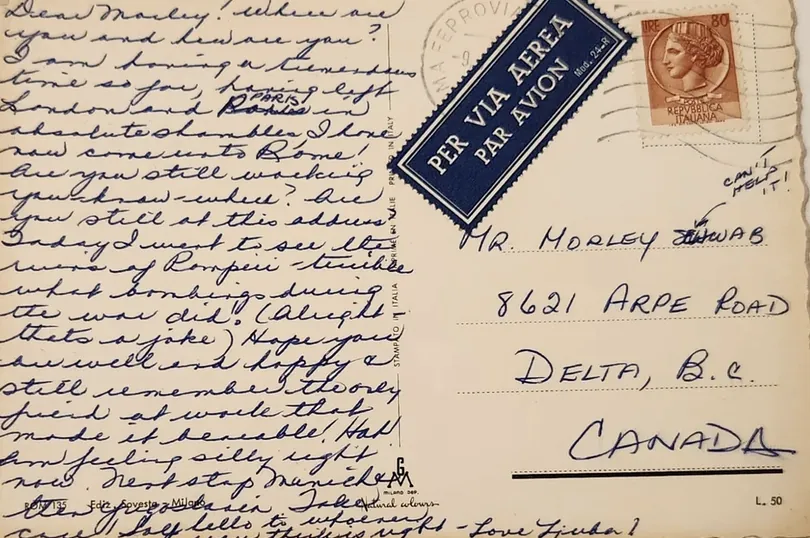 Dear Morley! Where are
you and how are you?
I am having a tremendous
time so far, having left
London and PARIS in
absolute shambles, I have
now come unto Rome!
Are you still working
you-know-where? Are
you still at this address
Today I went to see the
ruins of Pompeii - terrible
what bombings during
the war did. (Alright
thats a joke) Hope you
are well and happy &
still remember the only
friend at work that
made it bearable! Hah!
Am feeling silly right
now. Next stop Munich &
then Yugoslavia. Take
care! Say hello to whoever
right - Love Ljuba!
ROM 135 Ediz. Sovesta - Milano
PRINTED IN ITALY
IMPRIMÉ EN ITALIE
STAMPATO IN ITALIA
MA FERROVIA
PER VIA AEREA
PAR AVION
Mod. 24-R
LIRE 80
REPVBBLICA
ITALIANA
CAN'T
HELP
IT!
MR. MORLEY SCHWAB
8621 ARPE ROAD
DELTA, B.C.
CANADA
GM
MILANO DEP.
Natural colours
L. 50